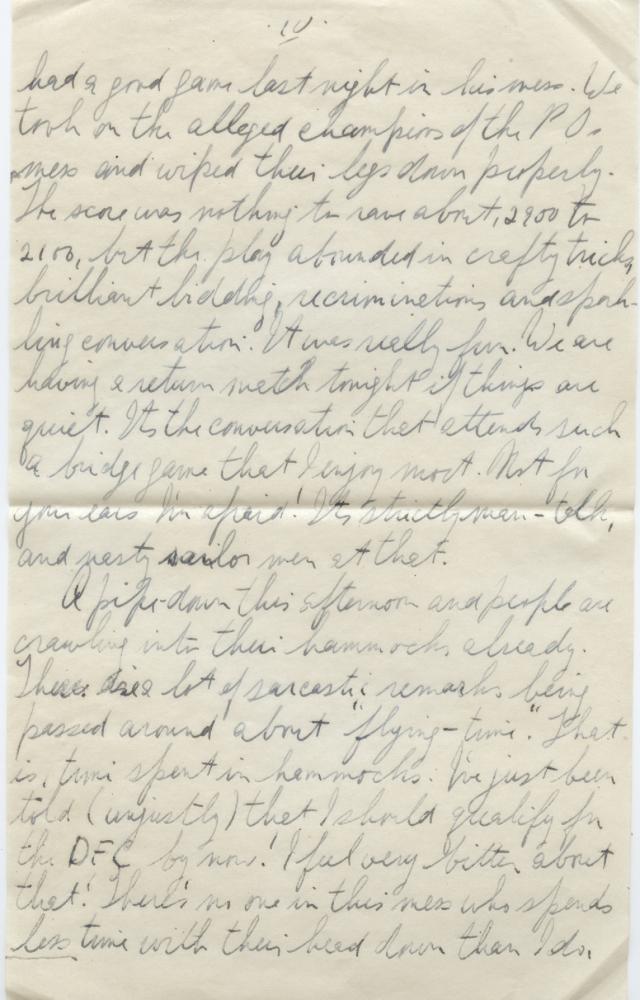 10.
had a good game last night in his mess. We
took on the alleged champions of the P Os
mess and wiped their legs down properly.
The score was nothing to rave about, 2900 to
2100, but the play abounded in crafty tricks,
brilliant bidding, recriminations and spark-
ling conversation. It was really fun. We are
having a return match tonight if things are
quiet. Its the conversation that attends such
a bridge game that I enjoy most. Not for
your ears I'm afraid! Its strictly man-talk,
and nasty sailor men at that.
A pipe-down this afternoon and people are
crawling into their hammocks already.
There's a lot of sarcastic remarks being
passed around about "flying-time". That
is, time spent in hammocks. I've just been
told (unjustly) that I should qualify for
the DFC by now! I feel very bitter about
that! There's no one in this mess who spends
less time with their head down than I do.